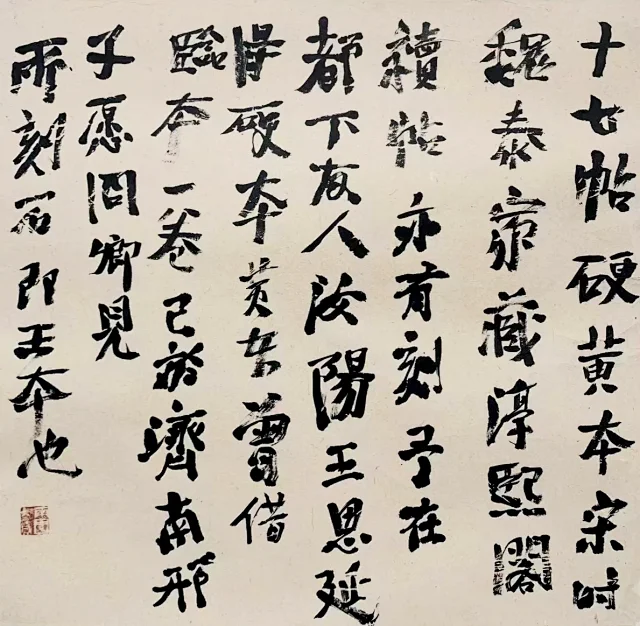 十七帖硬黄本宋时
魏泰家藏淳熙阁
续帖亦有刻予在
都下友人汝阳王思延
得硬本黄去曾借
临本一卷已于济南邢
子愿冏卿见
所刻石即王本也